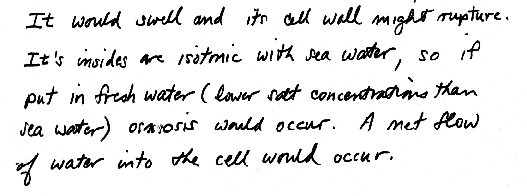 It would swell and its cell wall might rupture.
It's insides are isotonic with sea water, so if
put in fresh water (lower salt concentrations than
sea water) osmosis would occur. A net flow
of water into the cell would occur.